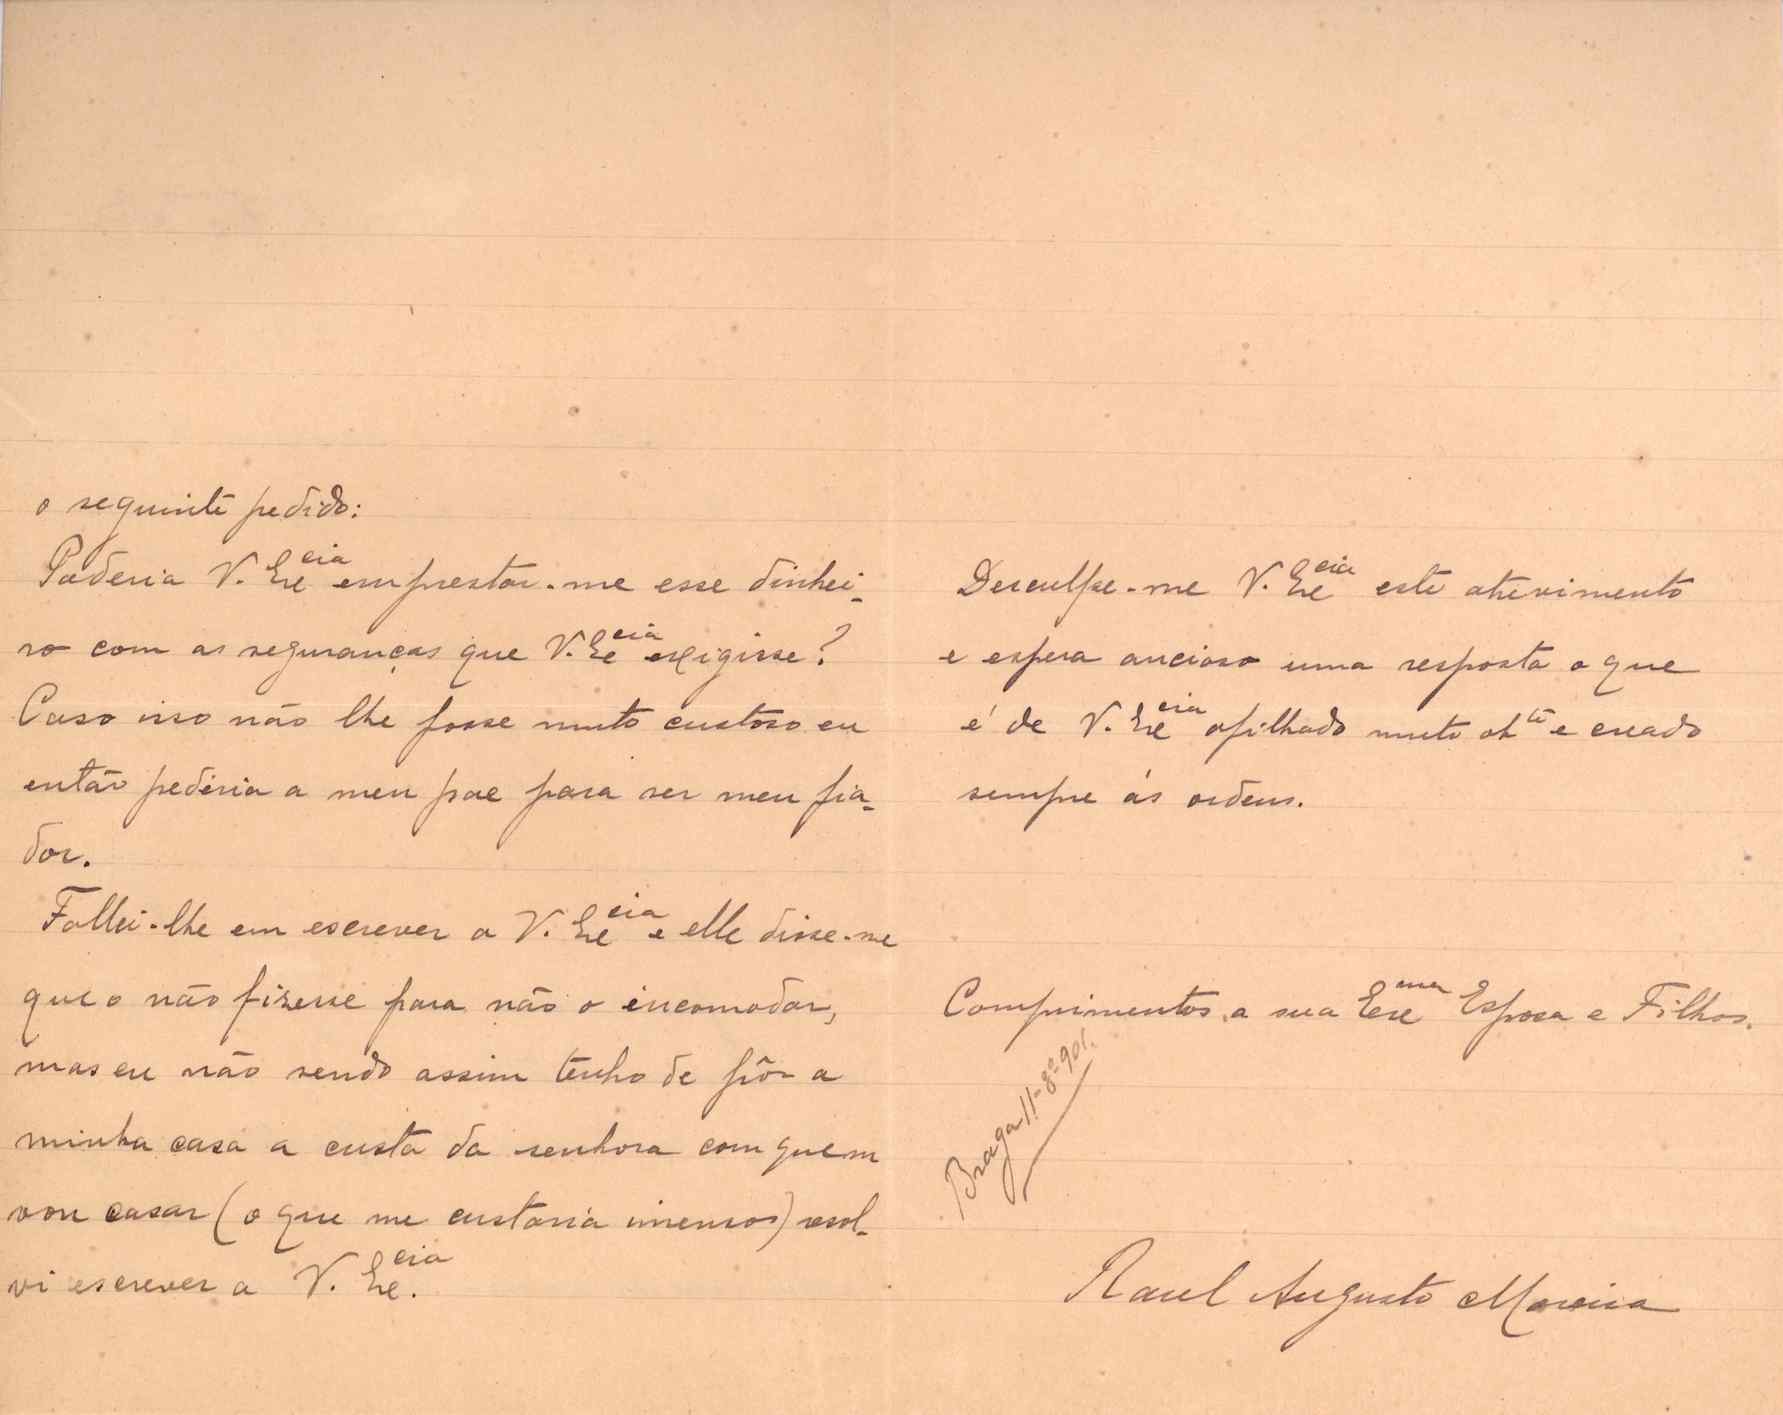 o seguinte pedido:
Poderia V. Exᶜⁱᵃ emprestar-me esse dinhei-
ro com as seguranças que V. Exᶜⁱᵃ exigisse?
Caso isso não lhe fosse muito custoso eu
então pediria a meu pae para ser meu fia-
dor.
Fallei-lhe em escrever a V. Exᶜⁱᵃ e elle disse-me
que o não fizesse para não o incomodar,
mas eu não sendo assim tenho de pôr a
minha casa a custa da senhora com quem
vou casar (o que me custaria imenso) resol-
vi escrever a V. Exᶜⁱᵃ.
Desculpe-me V. Exᶜⁱᵃ este atrevimento
e espera ancioso uma resposta o que
é de V. Exᶜⁱᵃ afilhado muto obᵗᵉ e creado
sempre ás ordens.
Comprimentos a sua Exᵐᵃ Esposa e Filhos.
Braga 11-8º-901.
Raul Augusto Moreira